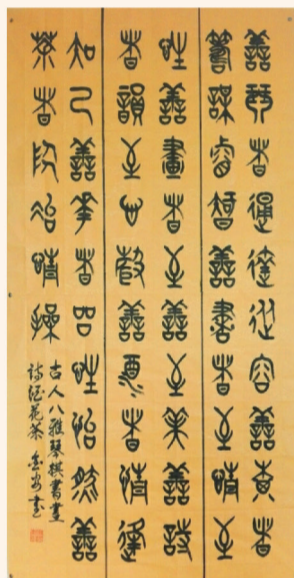 善琴者通達從容善棋者
籌謀睿智善書者至情至
性善畫者至善至美善詩
者韻至心聲善酒者情逢
知己善花者品性怡然善
茶者陶冶情操
古人八雅琴棋書畫
詩酒花茶